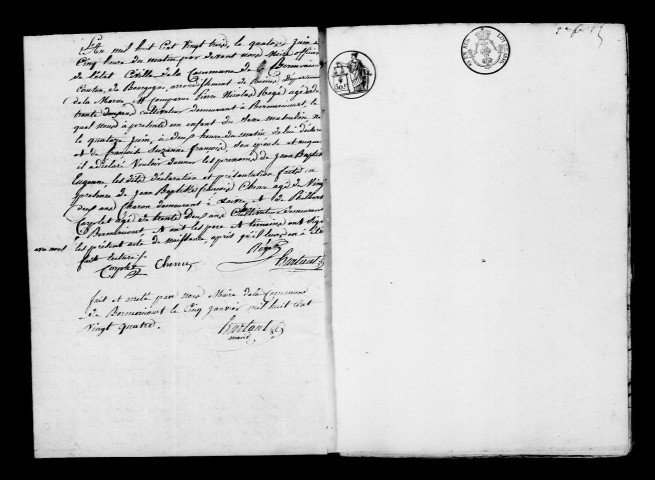 L'an mil huit Cent Vingt trois, le quatorze juin à
Cinq heure du matin par devant nous Maire officier
de l'état Civille de la Commune de Bermericourt
Canton de Bourgogne, arrondissement de Reims Département
de la Marne, est comparu Pierre Nicolas Rogé agé de
trente ans cultivateur demeurant à Bermericourt, le
quel nous a présenté un enfant du Sexe masculin né
le quatorze juin, à deux heure du matin de lui déclarant
et de françoise Suzanne françoise, son épouse et auquel
il a déclaré Vouloir donner les prénoms de Jean Baptiste
Eugenne, les dite déclaration et présentation faite en
présence de Jean Baptiste françois Chenu agé de Vingt
deux ans Charon demeurant à Loivre, et de
Carplet agé de trente deux ans Cultivateur demeurant
à Bermericourt, et ont les pere et témoins ont Signé
avec nous
le présent acte de naissance, après qu'il leur en a été
fait lecture ./.
Rogé
Carplet Chenu
fait et par nous Maire de la Commune
de Bermericourt le Cinq janvier mil huit cent
Vingt quatre.
maire